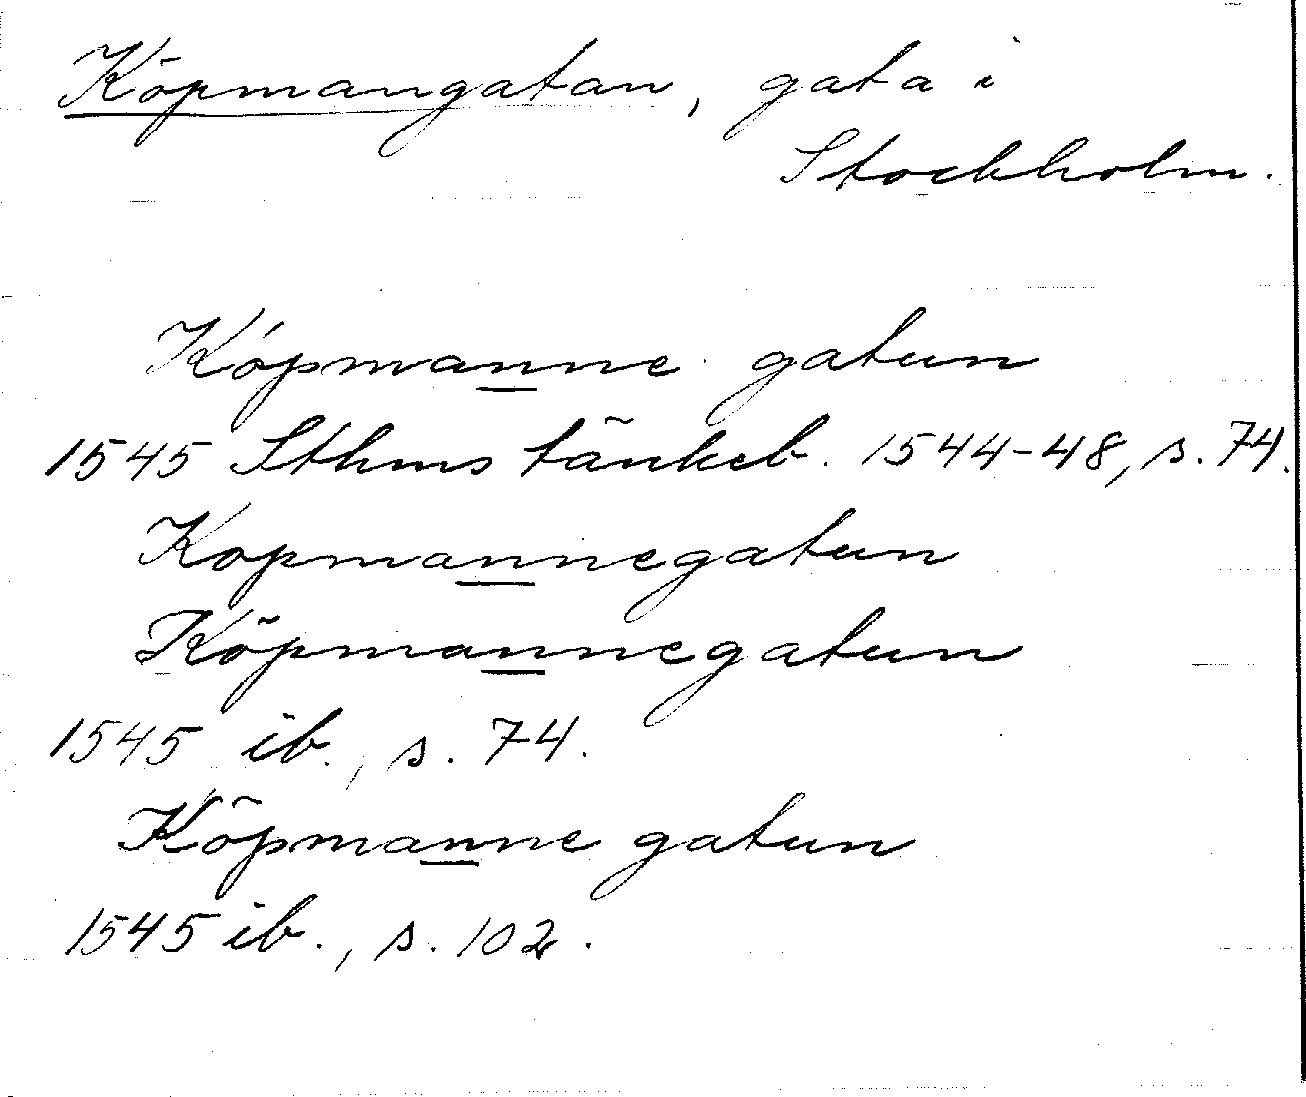 Köpmangatan, gata i
Stockholm.
Kópmanne gatun
1545 Sthms tänkeb. 1544-48, s. 74.
Kopmannegatun
Köpmannegatun
1545 ib., s. 74.
Köpmanne gatun
1545 ib., s. 102.